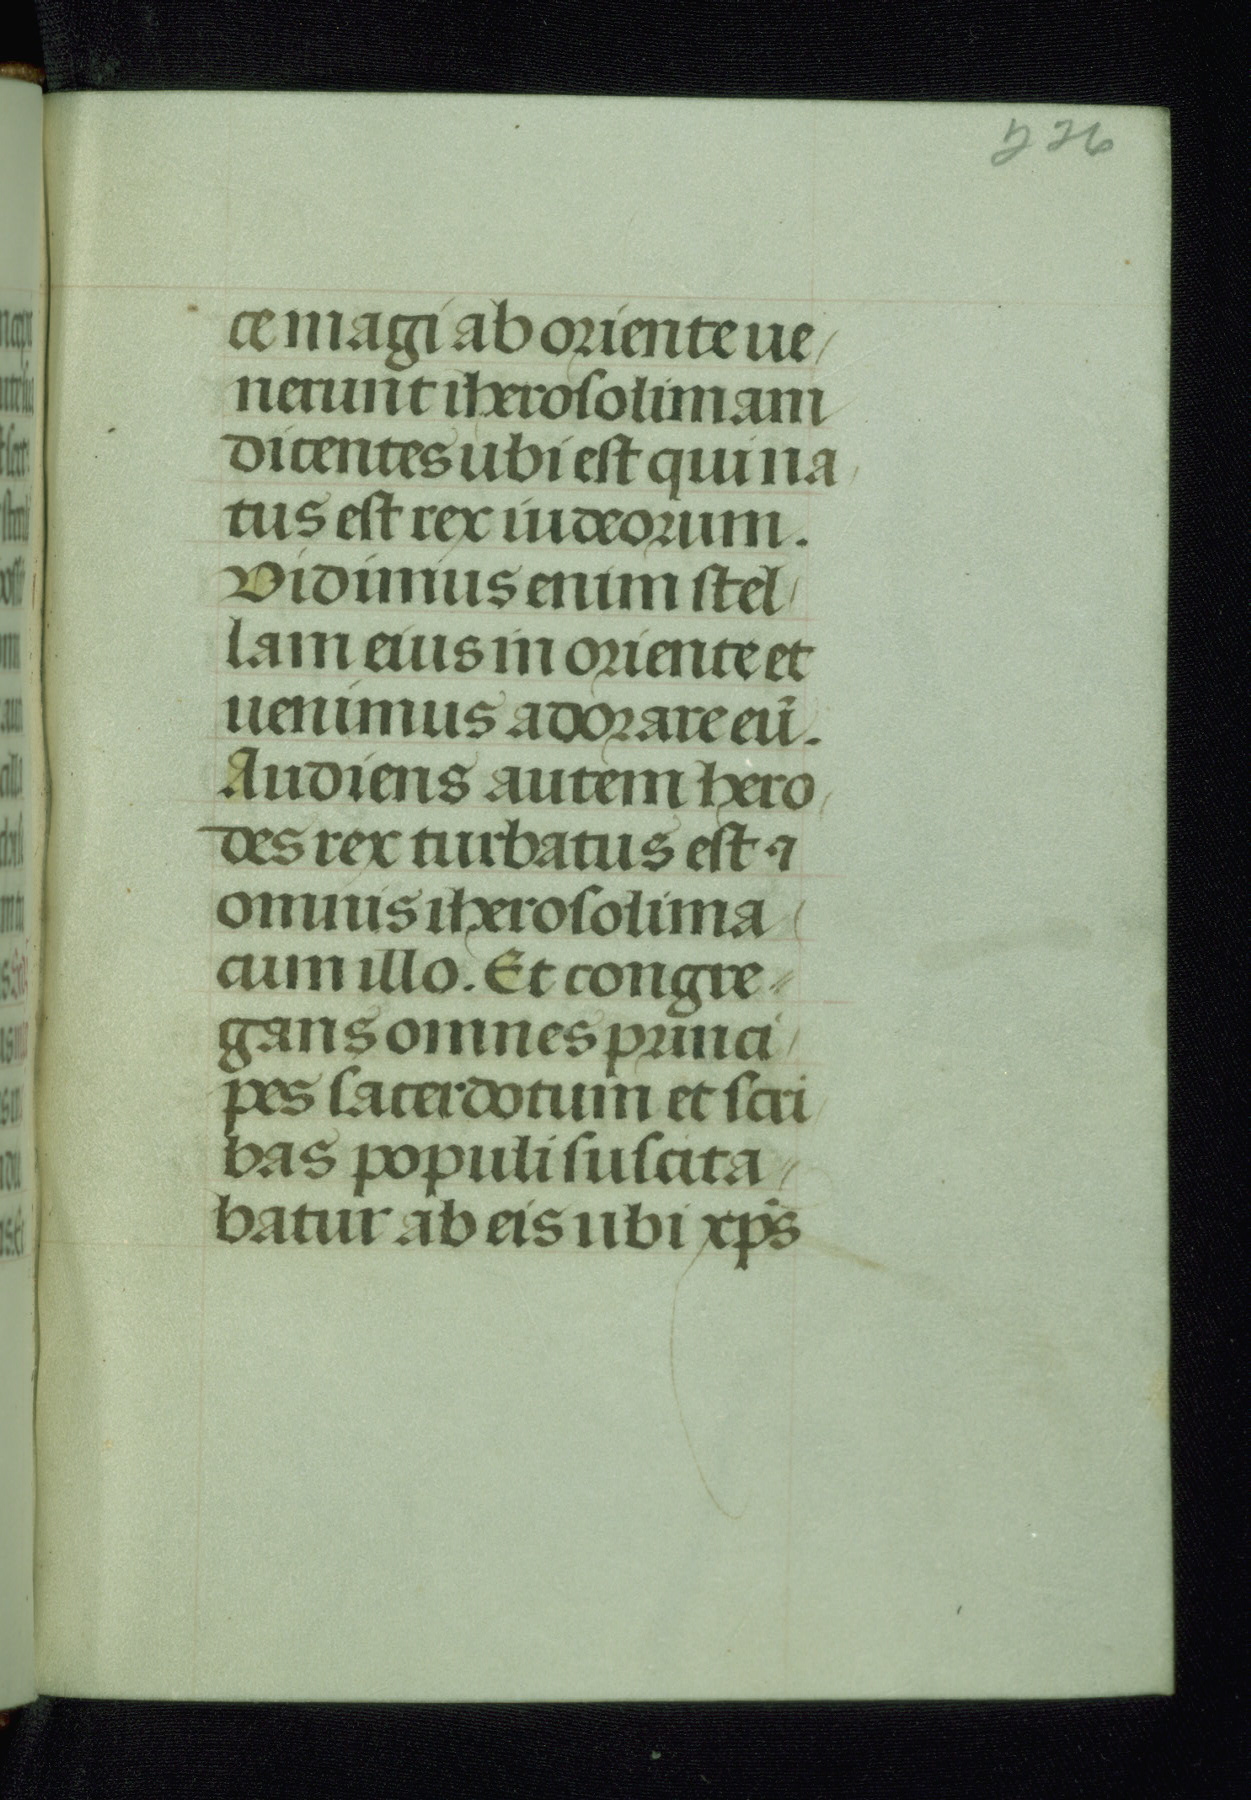 226
ce magi ab oriente ue/
nerunt iherosolimam
dicentes ubi est qui na/
tus est rex iudeorum.
Vidimus enim stel/
lam eius in oriente et
uenimus adorare eū.
Audiens autem hero/
des rex turbatus est ⁊
omnis iherosolima /
cum illo. Et congre//
gans omnes princi/
pes sacerdotum et scri/
bas populi suscita//
batur ab eis ubi xp̄s